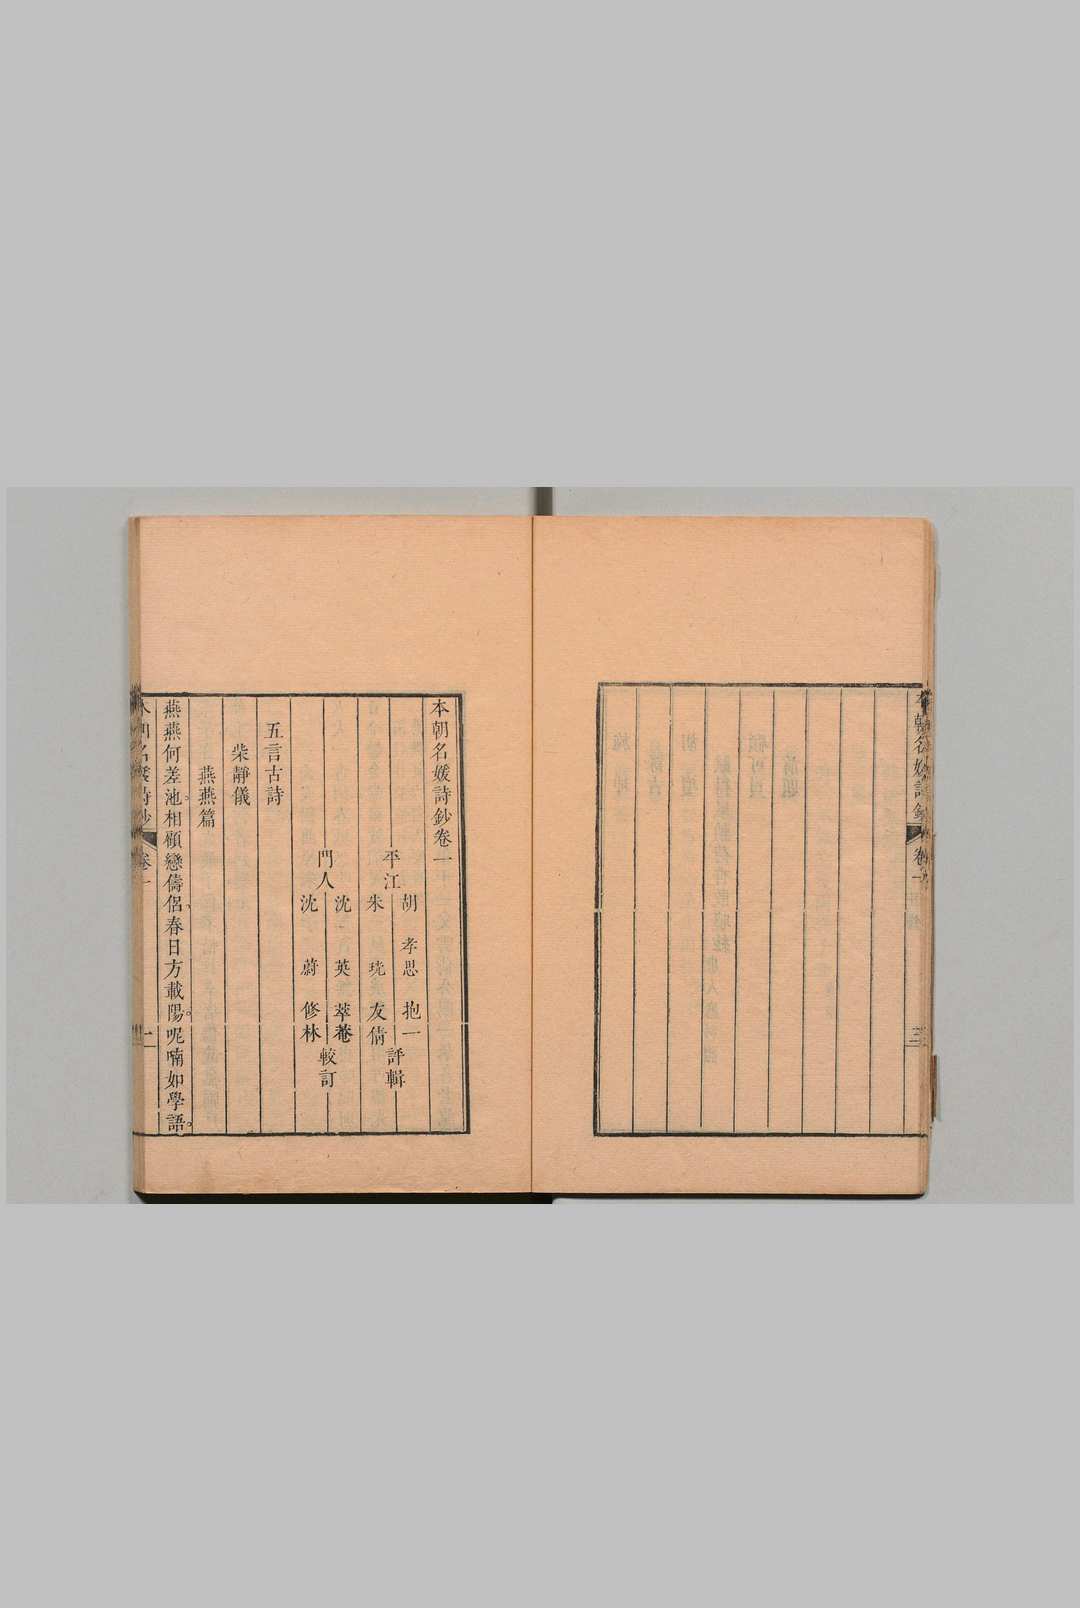 本朝名媛詩鈔
卷一
三
本朝名媛詩鈔卷一
平江
胡孝思抱一
朱珖友倩
評輯
門人
沈英萃菴
沈蔚修林
較訂
五言古詩
柴靜儀
燕燕篇
燕燕何差池相顧戀儔侶春日方載陽呢喃如學語
卷一
一